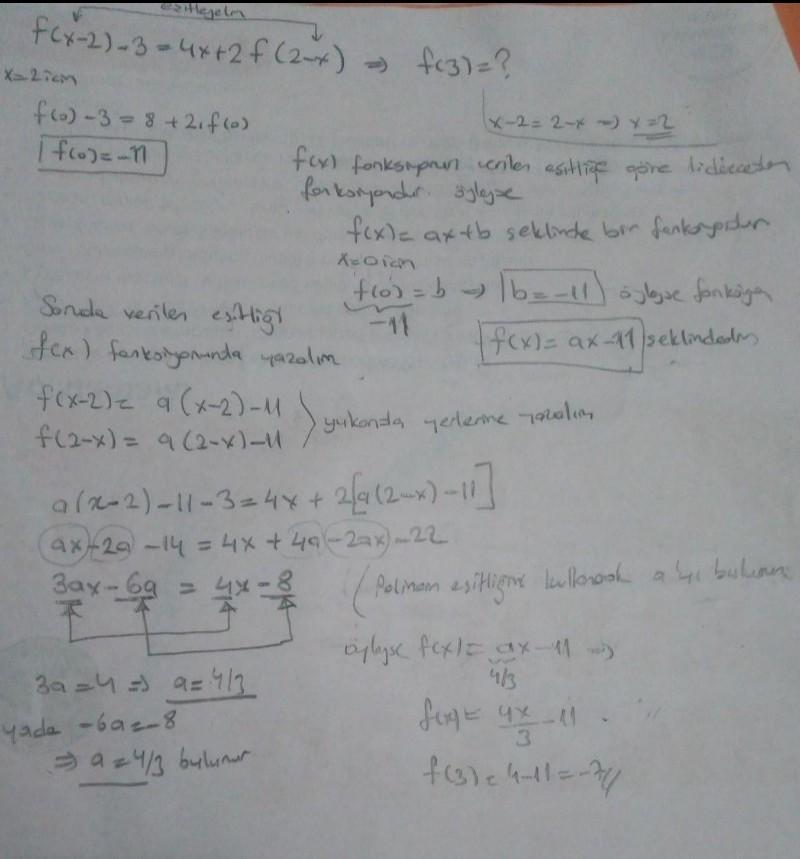 eşitleyelim
f(x-2)-3 = 4x+2 f(2-x) ⇒ f(3)=?
x=2 için
x-2 = 2-x ⇒ x=2
f(0)-3 = 8+2.f(0)
f(0)=-11
f(x) fonksiyonun verilen eşitliğe göre
fonksiyondur. öyleyse
f(x)= ax+b seklinde bir fonksiyondur
x=0 için
f(0)=b ⇒ b=-11 öyleyse fonksiyon
-11
f(x)= ax-11 seklindedir
Soruda verilen eşitliği
f(x) fonksiyonunda yazalım
f(x-2)= a(x-2)-11
f(2-x)= a(2-x)-11
yukarıda yerlerine yazalım
a(x-2)-11-3=4x+2[a(2-x)-11]
ax-2a-14 = 4x+4a-2ax-22
3ax-6a = 4x-8
(Polinom eşitliğini kullanarak a'yı bulunur
3a=4 ⇒ a=4/3
yada -6a=-8
⇒ a=4/3 bulunur
öyleyse f(x)= ax-11 ⇒
4/3
f(x)= 4x/3 -11
f(3)= 4-11=-7//